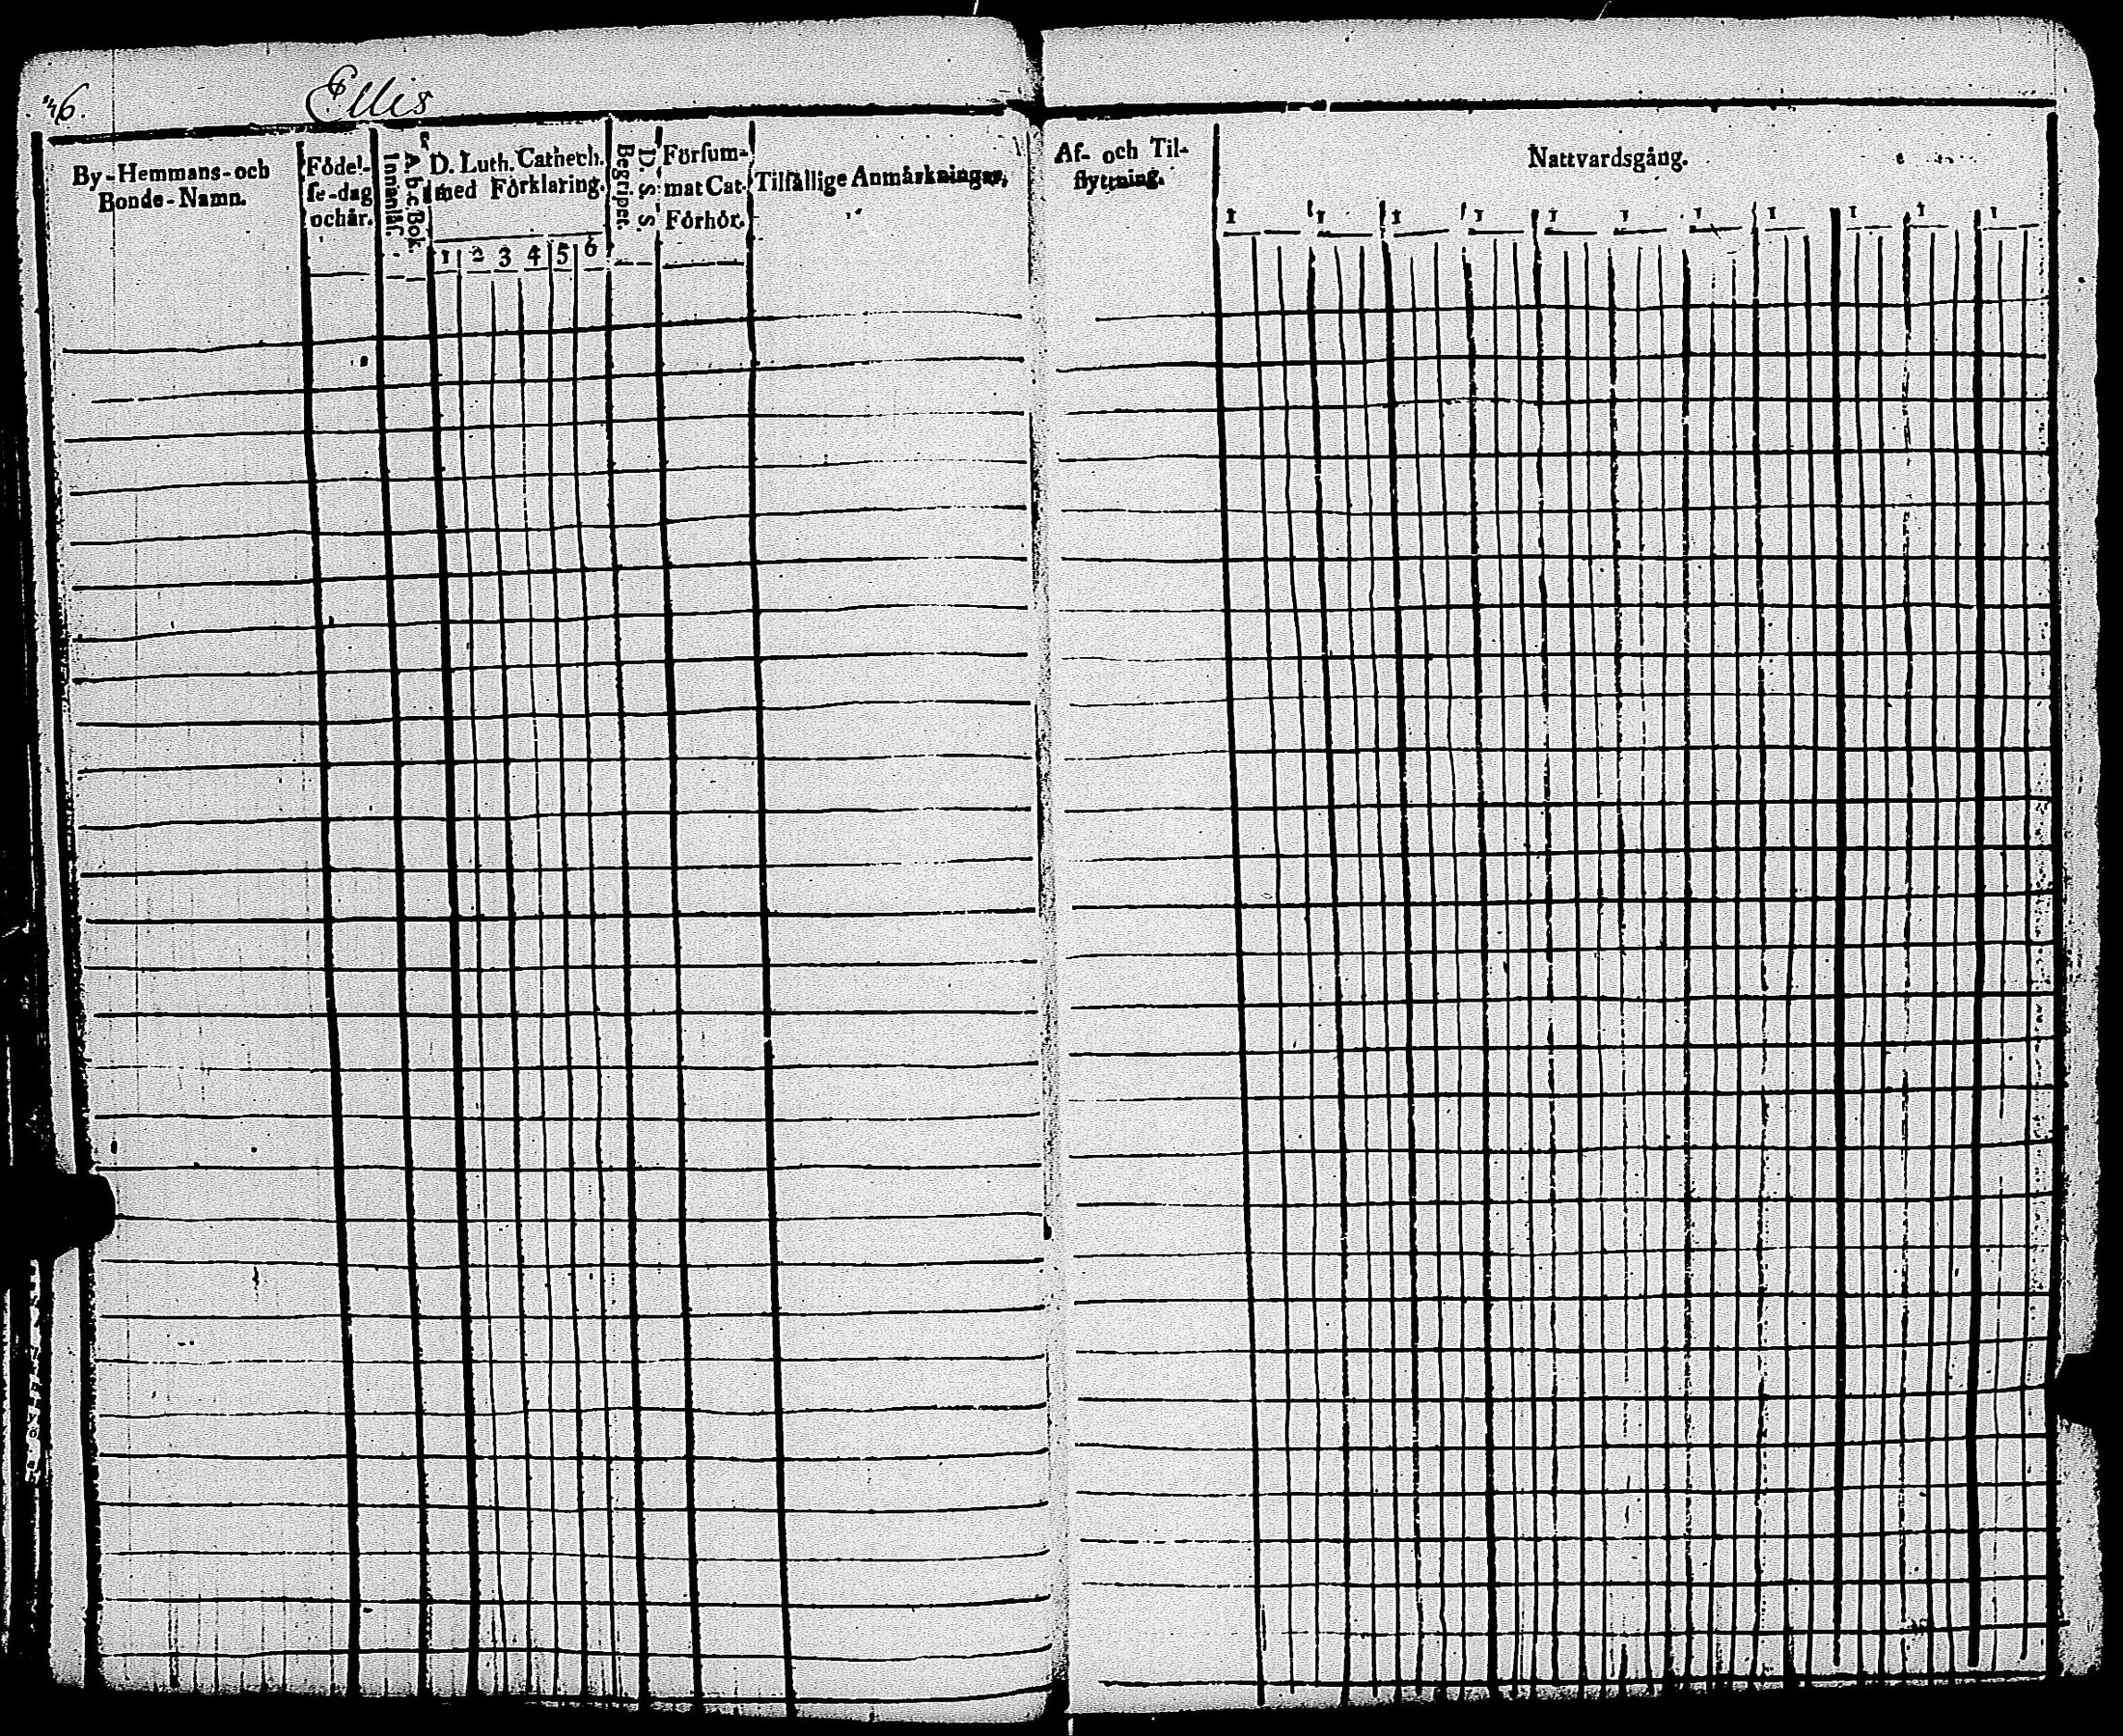 46.
Ellis
By-Hemmans- och
Bonde-Namn.
Födel-
se-dag
och år.
A. b. c. Bok.
Innanläs.
D. Luth. Cathech.
med Förklaring.
1 2 3 4 5 6
D. S. S.
Begripet.
Försum-
mat Cat.
Förhör.
Tilfällige Anmärkningar.
Af- och Til-
flyttning.
Nattvardsgång.
1 1 1 1 1 1 1 1 1 1 1